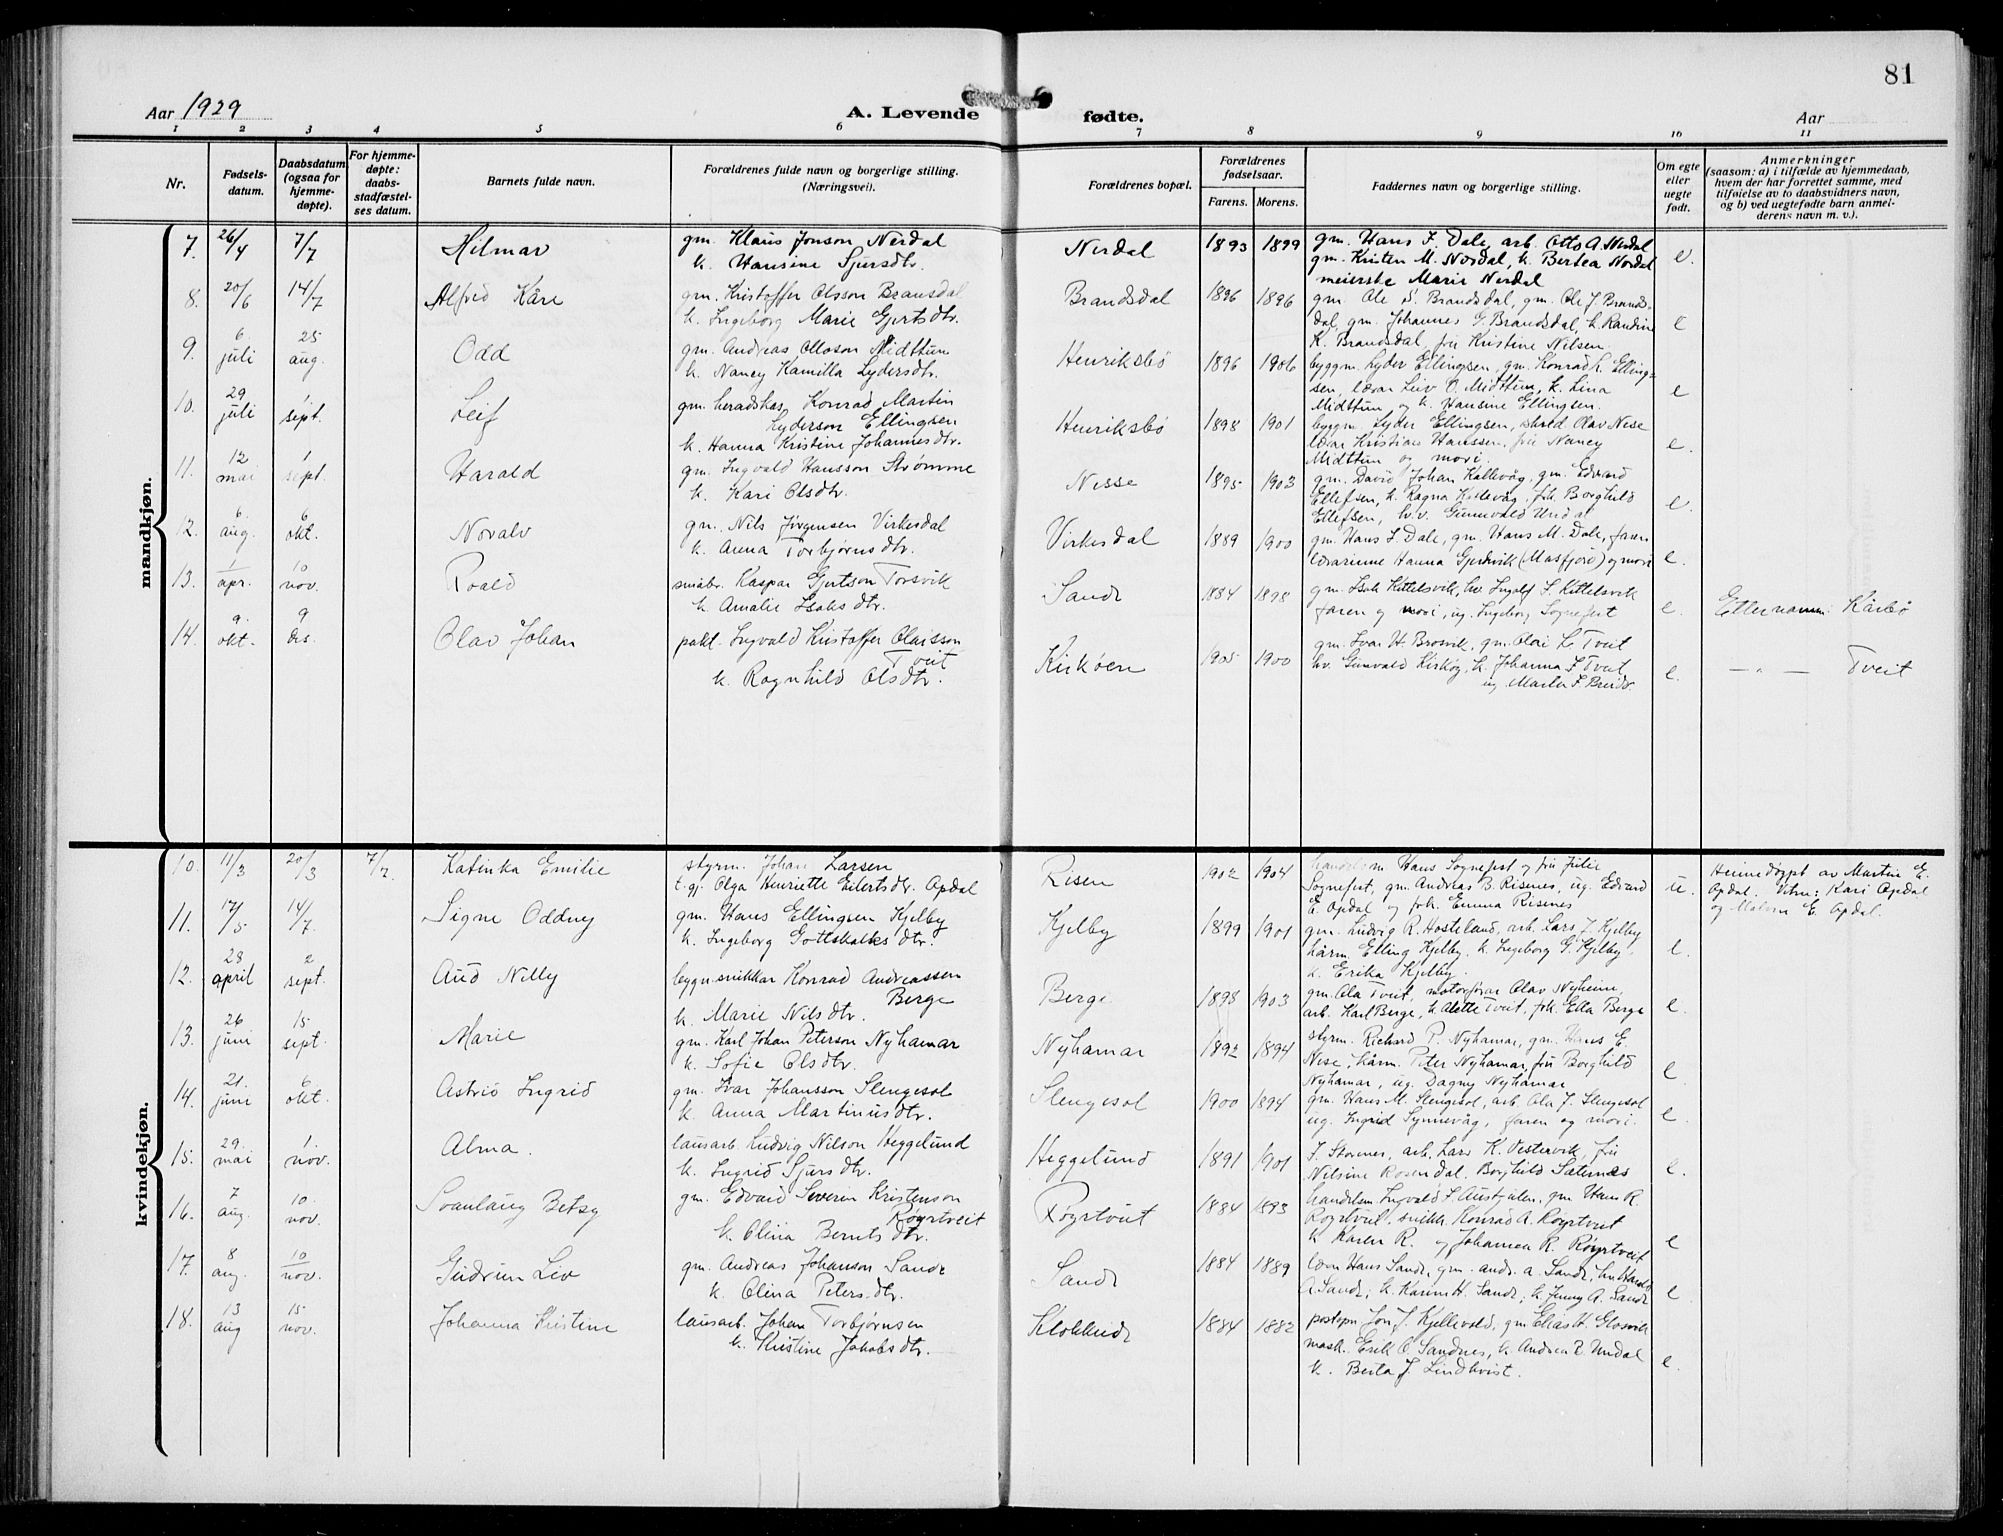 81
Aar 1929
A. Levende fødte.
Aar
1 2 3 4 5 6 7 8 9 10 11
Nr.
Fødsels-
datum.
Daabsdatum
(ogsaa for
hjemme-
døpte).
For hjemme-
døpte:
daabs-
stadfæstel-
ses datum.
Barnets fulde navn.
Forældrenes fulde navn og borgerlige stilling.
(Næringsvei).
Forældrenes bopæl.
Forældrenes
fødselsaar.
Farens. Morens.
Faddernes navn og borgerlige stilling.
Om egte
eller
uegte
født.
Anmerkninger
(saasom: a) i tilfælde av hjemmedaab,
hvem der har forrettet samme, med
tilføielse av to daabsvidners navn,
og b) ved uegtefødte barn anmel-
derens navn m. v.).
mandkjøn.
7. 26/4 7/7 Hilmar
gm. Klaus Jonson Nerdal
k. Hansine Sjursdtr.
Nerdal 1893 1899
gm. Hans F. Dale, arb. Otto A. Nerdal
gm. Kristen M. Nerdal, k. Bertea Nerdal
meierske Marie Nerdal
e.
8. 20/6 14/7 Alfred Kåre
gm. Kristoffer Olsson Bransdal
k. Ingeborg Marie Gjertsdtr.
Brandsdal 1896 1896
gm. Ole S. Brandsdal, gm. Ole J. Brands-
dal, gm. Johannes G. Brandsdal, k. Randine
K. Brandsdal, frü Kristine Nilsen.
e
9. 6 juli 25 aug. Odd
gm. Andreas Ottoson Midttun
k. Nancy Kamilla Lydersdtr.
Henriksbø 1896 1906
byggm. Lyder Ellingsen, gm. Konrad L. Elling-
sen, lærar Leiv O. Midttun, k. Lina
Midttun og k. Hansine Ellingsen.
e
10. 29 juli 1 sept. Leif
gm. heradskas. Konrad Martin
Lyderson Ellingsen
k. Hanna Kristine Johannesdtr.
Henriksbø 1898 1901
byggm. Lyder Ellingsen, Olav Nese
lærar Kristian Hanssen, frü Nancy
Midttun og mori.
e.
11. 12 mai 1 sept. Harald
gm. Ingvald Hansson Strømme
k. Kari Olsdtr.
Nesse 1895 1903
gm. David Johan Kallevåg, gm. Edvard
Ellefsen, k. Ragna Kallevåg, frk. Borghild
Ellefsen, h.v. Gunnvald Undal
e.
12. 6. aug. 6 okt. Noralv
gm. Nils Jørgensen Virkesdal
k. Anna Torbjørnsdtr.
Virkesdal 1889 1900
gm. Hans F. Dale, gm. Hans M. Dale, faren
lærarinne Hanna Gjerkvik (Masfjord) og mori
e.
13. 1 apr. 10 nov. Roald
småbr. Kaspar Gjertson Torsvik
k. Amalie Isaksdtr.
Sande 1884 1898
gm. Isak Kittelsvik, hv. Ingolf I. Kittelsvik
faren og mori, ug. Ingeborg Sognefest
e.
Etternamn: Kårbø
14. 9. okt. 9 des. Olav Johan
pakt. Ingvald Kristoffer Olaisson
Tveit
k. Ragnhild Olsdtr.
Kirkøen 1905 1900
gm. Ivar H. Brosvik, gm. Olai L. Tveit
hv. Gunvald Kirkøy, k. Johanna I. Tveit
ug Marta I. Breidv.
e.
— „ — Tveit
kvindekjøn.
10. 11/3 20/3 7/7. Katinka Emilie
styrm. Johan Larsen
t.gj. Olga Henriette Eilertsdtr. Opdal
Risen 1902 1904
handelsm Hans Sognefest og frü Julie
Sognefest, gm. Andreas B. Risenes, ug. Edvard
E. Opdal og frk. Emma Risenes
u.
Heimedøypt av Martin E.
Opdal. Vitne: Kari Opdal
og Malvin E. Opdal.
11. 17/5 14/7. Signe Oddny
gm. Hans Ellingsen Kjelby
k. Ingeborg Gottskalksdtr.
Kjelby 1899 1901
gm. Ludvig R. Hosteland, arb. Lars J. Kjelby
kårm. Elling Kjelby, k. Ingeborg G. Kjelby,
k. Erika Kjelby.
e.
12. 28 april 2 sept. Aud Nelly
bygn.snikkar Konrad Andreassen
Berge
k. Marie Nilsdtr.
Berge 1898 1903
gm. Ola Tveit, motorførar Olav Nyheim,
arb. Karl Berge, k. Alette Tveit, frk. Etta Berge
e.
13. 26 juni 15 sept. Marie
gm. Karl Johan Peterson Nyhamar
k. Sofie Olsdtr.
Nyhamar 1892 1894
styrm. Richard P. Nyhamar, gm. Hans E.
Nese, kårm. Peter Nyhamar, frü Borghild
Nyhamar, ug. Dagny Nyhamar
e.
14. 21. juni 6 okt. Astrid Ingrid
gm. Ivar Johansson Slengesol
k. Anna Martinusdtr.
Slengesol 1900 1894
gm. Hans M. Slengesol, arb. Ola J. Slengesol
ug. Ingrid Synnevåg, faren og mori.
e
15. 29. mai 1. nov. Alma.
lausarb. Ludvig Nilson Heggelund
k. Ingrid Sjursdtr.
Heggelund 1891 1901
J. Storenes, arb. Lars K. Vestervik, frü
Nilsine Rosendal, Borghild Sætenes
e.
16. 7 aug. 10. nov. Svanlaug Betsy
gm. Edvard Severin Kristenson
Røyrtveit
k. Olina Berntsdtr.
Røyrtveit 1884 1893
handelsm. Ingvald S. Austgulen, gm Hans R.
Røyrtveit, snikk. Konrad A. Røyrtveit
k. Karen R. og Johanna R. Røyrtveit
e
17. 8 aug. 10 nov. Gudrun Liv
gm. Andreas Johanson Sande
k. Olina Petersdtr.
Sande 1884 1889
Hans Sande, gm. Andr. A. Sande, hv. Harald
A. Sande, k. Karin H. Sande, k. Jenny A. Sande
e.
18. 13 aug 15 nov. Johanna Kristine
lausarb. Johan Torbjørnsen
k. Kristine Jakobsdtr.
Klokkeide 1884 1882
postopn Jon J. Kjellevold, gm Elias H. Glosvik
mask. Erik O. Sandnes, k. Andrea R. Undal
k. Berta J. Lindkvist.
e.